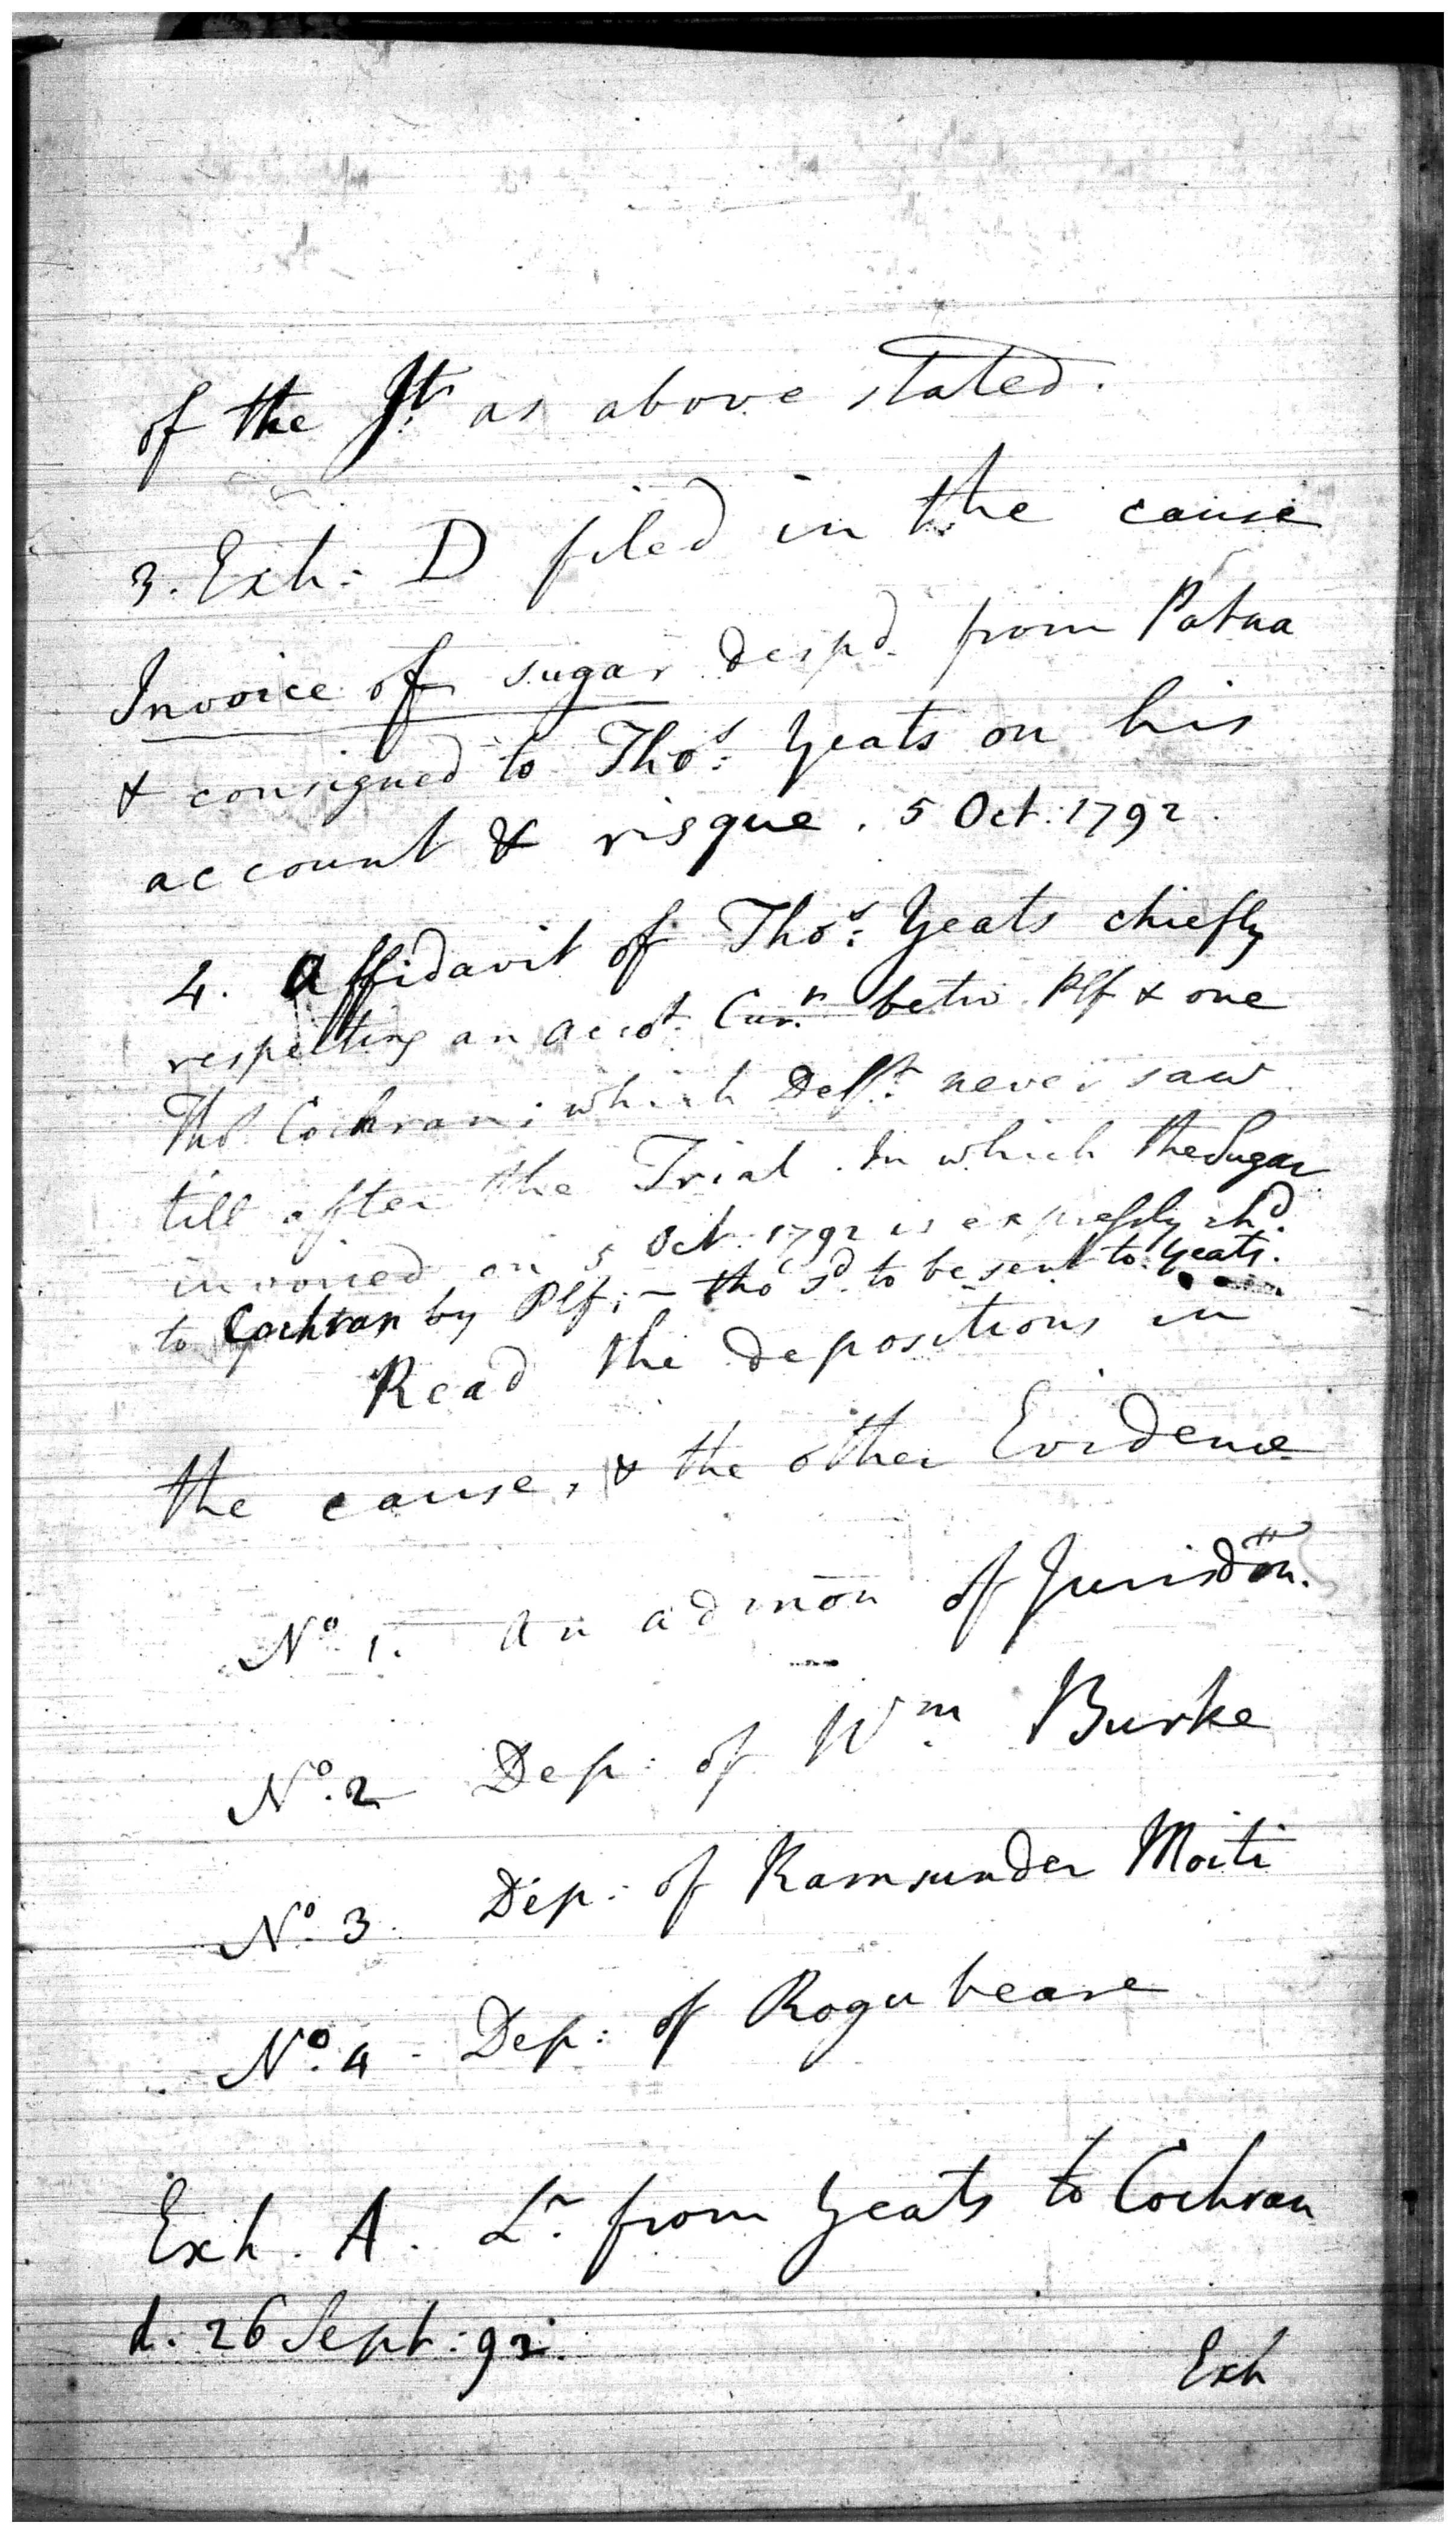 of the Jt. as above stated.
3. Exh: D filed in the cause
Invoice of sugar despd. from Patna
& consigned to Thos: Yeats on his
account & risque. 5 Oct: 1792.
4. Affidavit of Thos: Yeats chiefly
respecting an accot. Curr. betw. Plf & one
Thos. Cochran; which Deft. never saw
till after the Trial. In which the Sugar
invoiced on 5 Oct: 1792 is expressly chd.
to Cochran by Plf; – tho' sd. to be sent to Yeats.
Read the depositions in
the cause, & the other Evidence
No. 1. An admon of Jurisdon.
No. 2 Dep: of Wm. Burke
No. 3. Dep: of Ramsunder Moiti
No. 4 - Dep: of Rogu beare
Exh. A. Lr. from Yeats to Cochran
d. 26 Sept: 92.
Exh